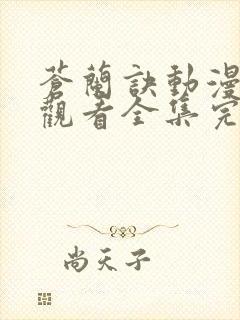 蒼蘭訣動漫
觀看全集完
尚天子